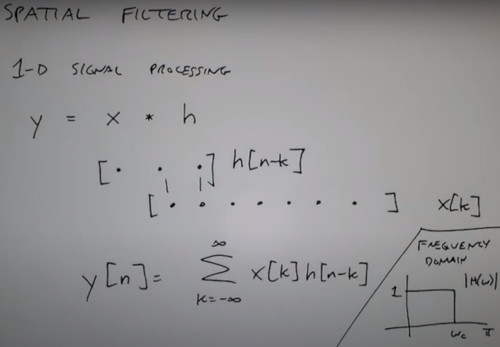 SPATIAL FILTERING
1-D SIGNAL PROCESSING
y = x * h
[. . .] h[n-k]
[. . . . . . .] x[k]
y[n] = ∞∑k=-∞ x[k]h[n-k]
FREQUENCY
DOMAIN
|H(ω)|
1
ωc π